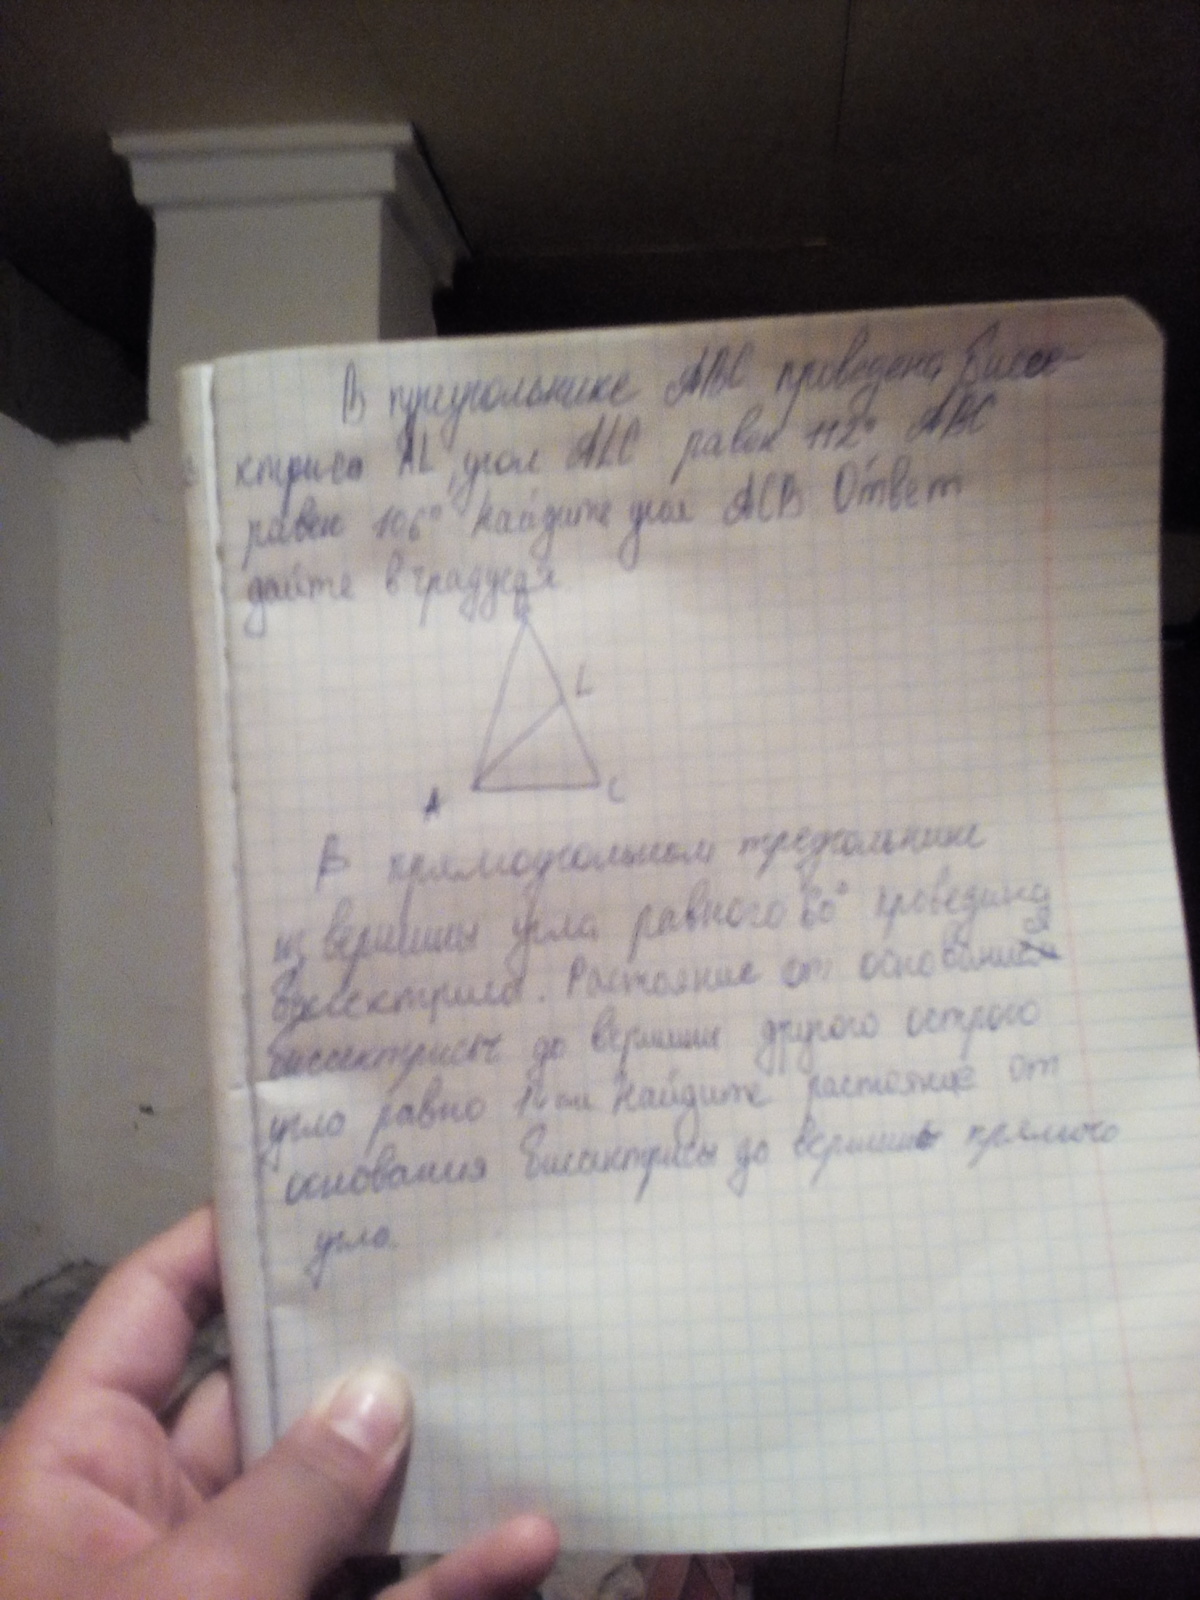 В треугольнике ABC проведена биссе-
ктриса AL, угол ALC равен 112° ABC
равен 106° Найдите угол ACB Ответ
дайте в градусах
B
L
A C
В прямоугольном треугольнике
из вершины угла равного 60° проведина
биссектриса. Растояние от основания
биссектрисы до вершины другого острого
угла равно см Найдите растояние от
основания бисектрисы до вершины прямого
угла.